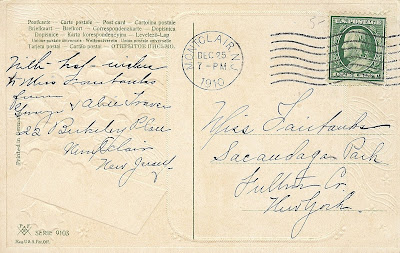 Postkarte—Carte postale—Post card—Cartolina postale
Briefkaart—Brefkort—Correspondenzkarte—Dopisnice
Dopisnica—Karta korespondencyjna—Levelező-Lap
Union postale universelle—Weltpostverein—Unione postale universale
Tarjeta postal—ОТКРЫТОЕ ПИСЬМО.
MONTCLAIR, N.J.
DEC 25
7-PM
1910
U.S. POSTAGE
With best wishes
to Miss Fairbanks
from
George & Alice
22 Berkeley Place
Montclair
New Jersey
Miss Fairbanks
Sacandaga Park
Fulton Co.
New York.
Printed in
SERIE 9105